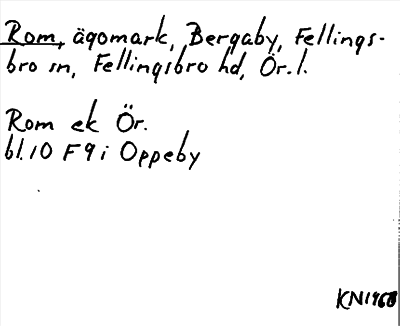 Rom, ägomark, Bergaby, Fellings-
bro sn, Fellingsbro hd, Ör. l.
Rom ek Ör.
bl. 10 F 9 i Oppeby
KN1968